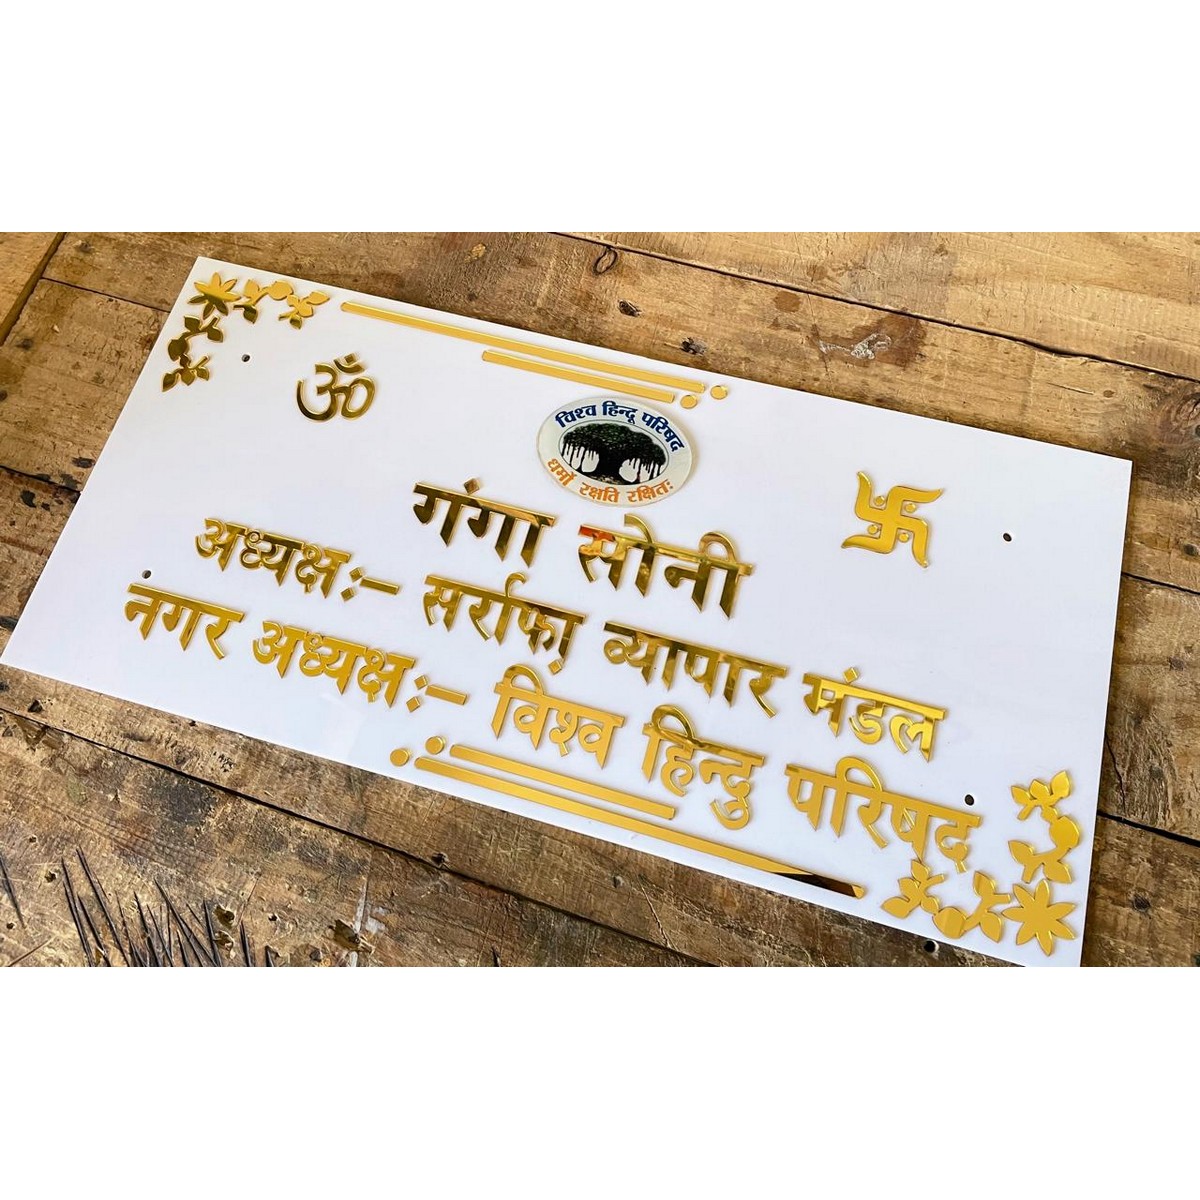 ॐ
विश्व हिन्दू परिषद
धर्मो रक्षति रक्षितः
गंगा सोनी
अध्यक्ष:- सर्राफा़ व्यापार मंडल
नगर अध्यक्ष:- विश्व हिन्दु परिषद